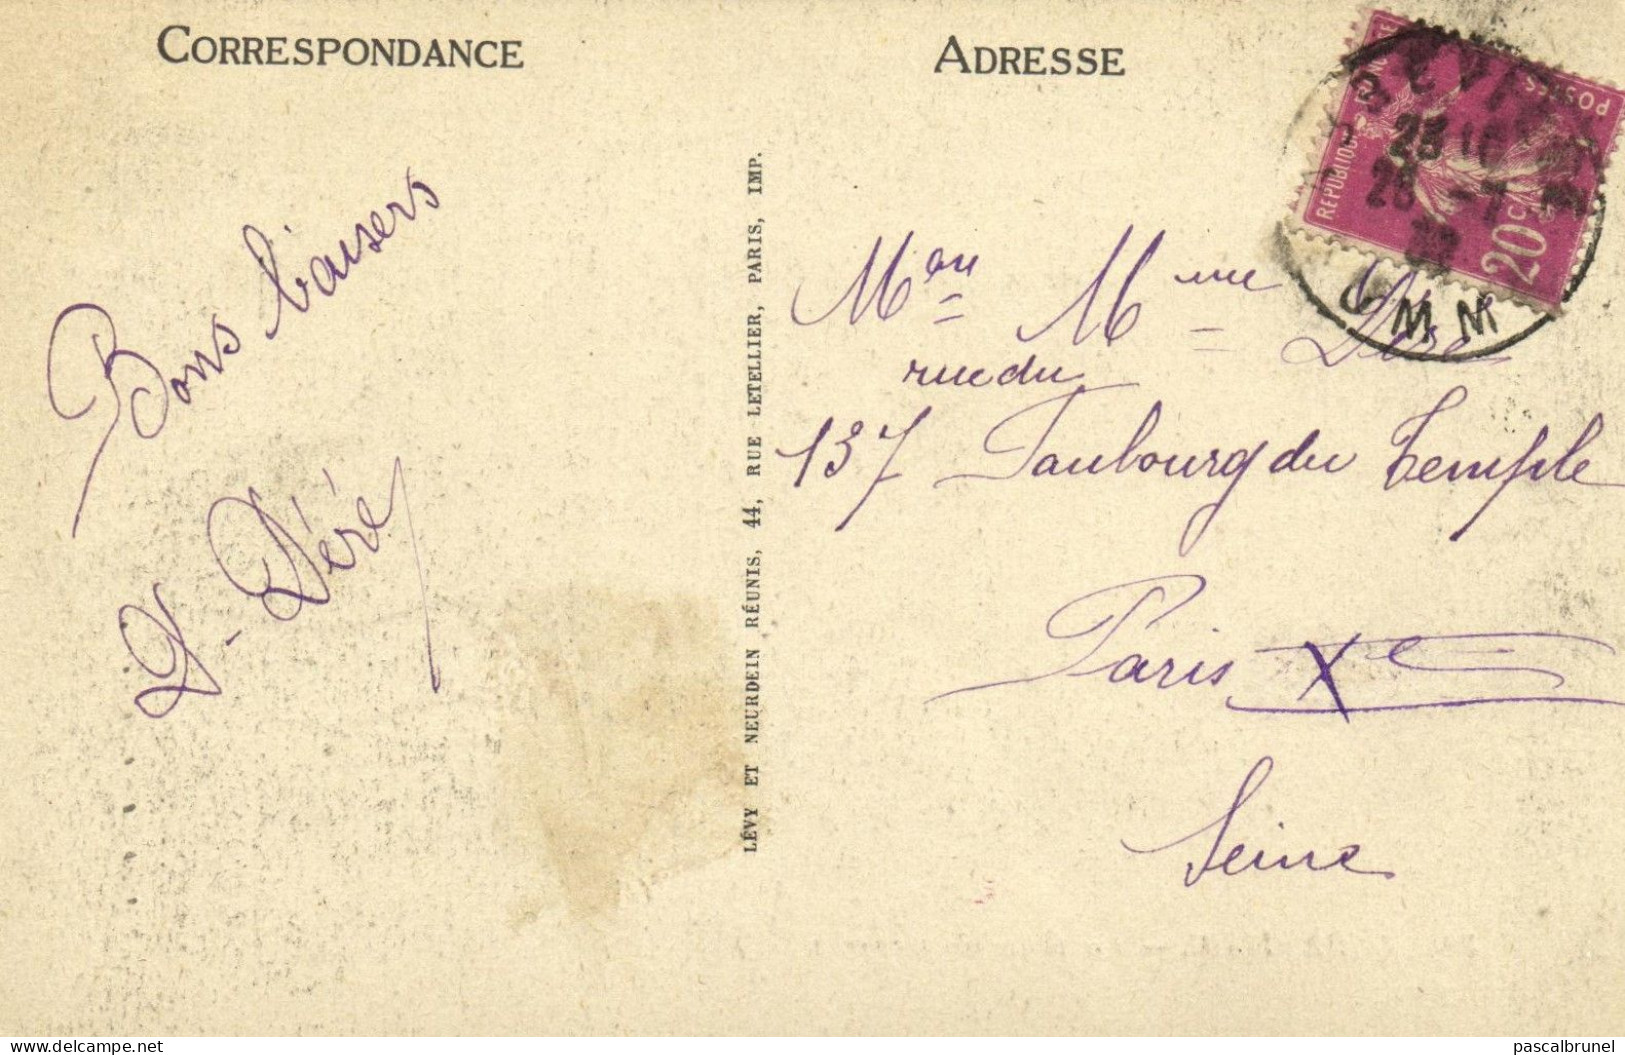 CORRESPONDANCE
ADRESSE
Bons baisers
D. Déré
LÉVY ET NEURDEIN RÉUNIS, 44, RUE LETELLIER, PARIS, IMP.
POSTES
RÉPUBLIQUE
20c
23
25 -7
Mme Déré
rue du
137 Faubourg du Temple
Paris Xe
Seine
delcampe.net
pascalbrunel